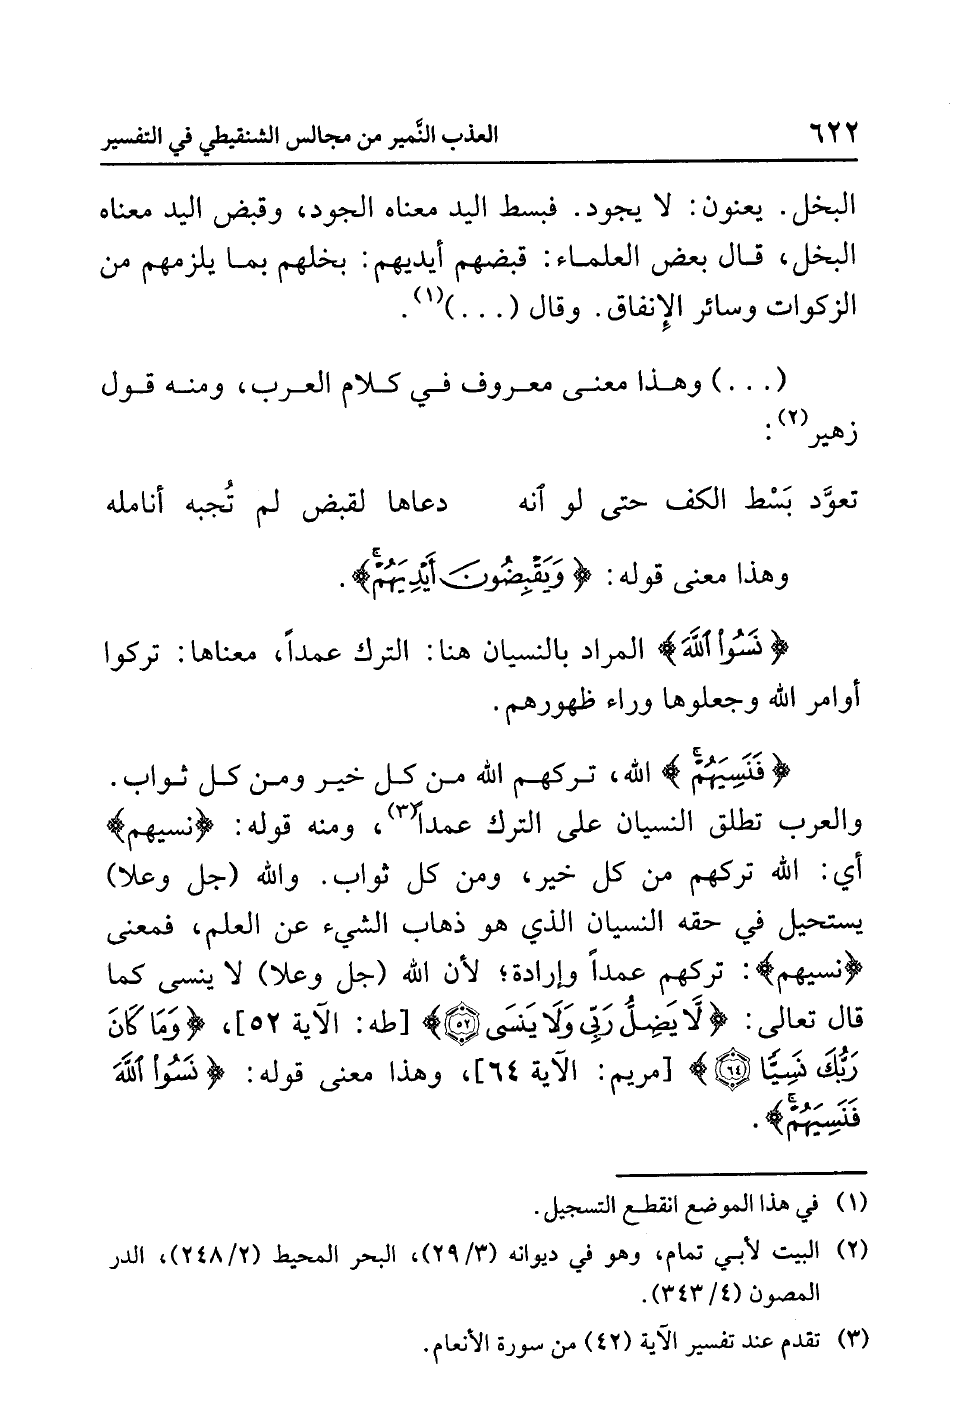 ٦٢٢ العذب النَّمير من مجالس الشنقيطي في التفسير
البخل. يعنون: لا يجود. فبسط اليد معناه الجود، وقبض اليد معناه
البخل، قال بعض العلماء: قبضهم أيديهم: بخلهم بما يلزمهم من
الزكوات وسائر الإنفاق. وقال (...)(١).
(...) وهذا معنى معروف في كلام العرب، ومنه قول
زهير(٢):
تعوَّد بَسْط الكف حتى لو ٱنه دعاها لقبض لم تُجبه أنامله
وهذا معنى قوله: ﴿وَيَقْبِضُونَ أَيْدِيَهُمْۚ﴾.
﴿نَسُوا۟ ٱللَّهَ﴾ المراد بالنسيان هنا: الترك عمداً، معناها: تركوا
أوامر الله وجعلوها وراء ظهورهم.
﴿فَنَسِيَهُمْۚ﴾ الله، تركهم الله من كل خير ومن كل ثواب.
والعرب تطلق النسيان على الترك عمداً(٣)، ومنه قوله: ﴿نسيهم﴾
أي: الله تركهم من كل خير، ومن كل ثواب. والله (جل وعلا)
يستحيل في حقه النسيان الذي هو ذهاب الشيء عن العلم، فمعنى
﴿نسيهم﴾: تركهم عمداً وإرادة؛ لأن الله (جل وعلا) لا ينسى كما
قال تعالى: ﴿لَّا يَضِلُّ رَبِّي وَلَا يَنسَى ٥٢﴾ [طه: الآية ٥٢]، ﴿وَمَا كَانَ
رَبُّكَ نَسِيًّا ٦٤﴾ [مريم: الآية ٦٤]، وهذا معنى قوله: ﴿نَسُوا۟ ٱللَّهَ
فَنَسِيَهُمْۚ﴾.
(١) في هذا الموضع انقطع التسجيل.
(٢) البيت لأبي تمام، وهو في ديوانه (٢٩/٣)، البحر المحيط (٢٤٨/٢)، الدر
المصون (٣٤٣/٤).
(٣) تقدم عند تفسير الآية (٤٢) من سورة الأنعام.